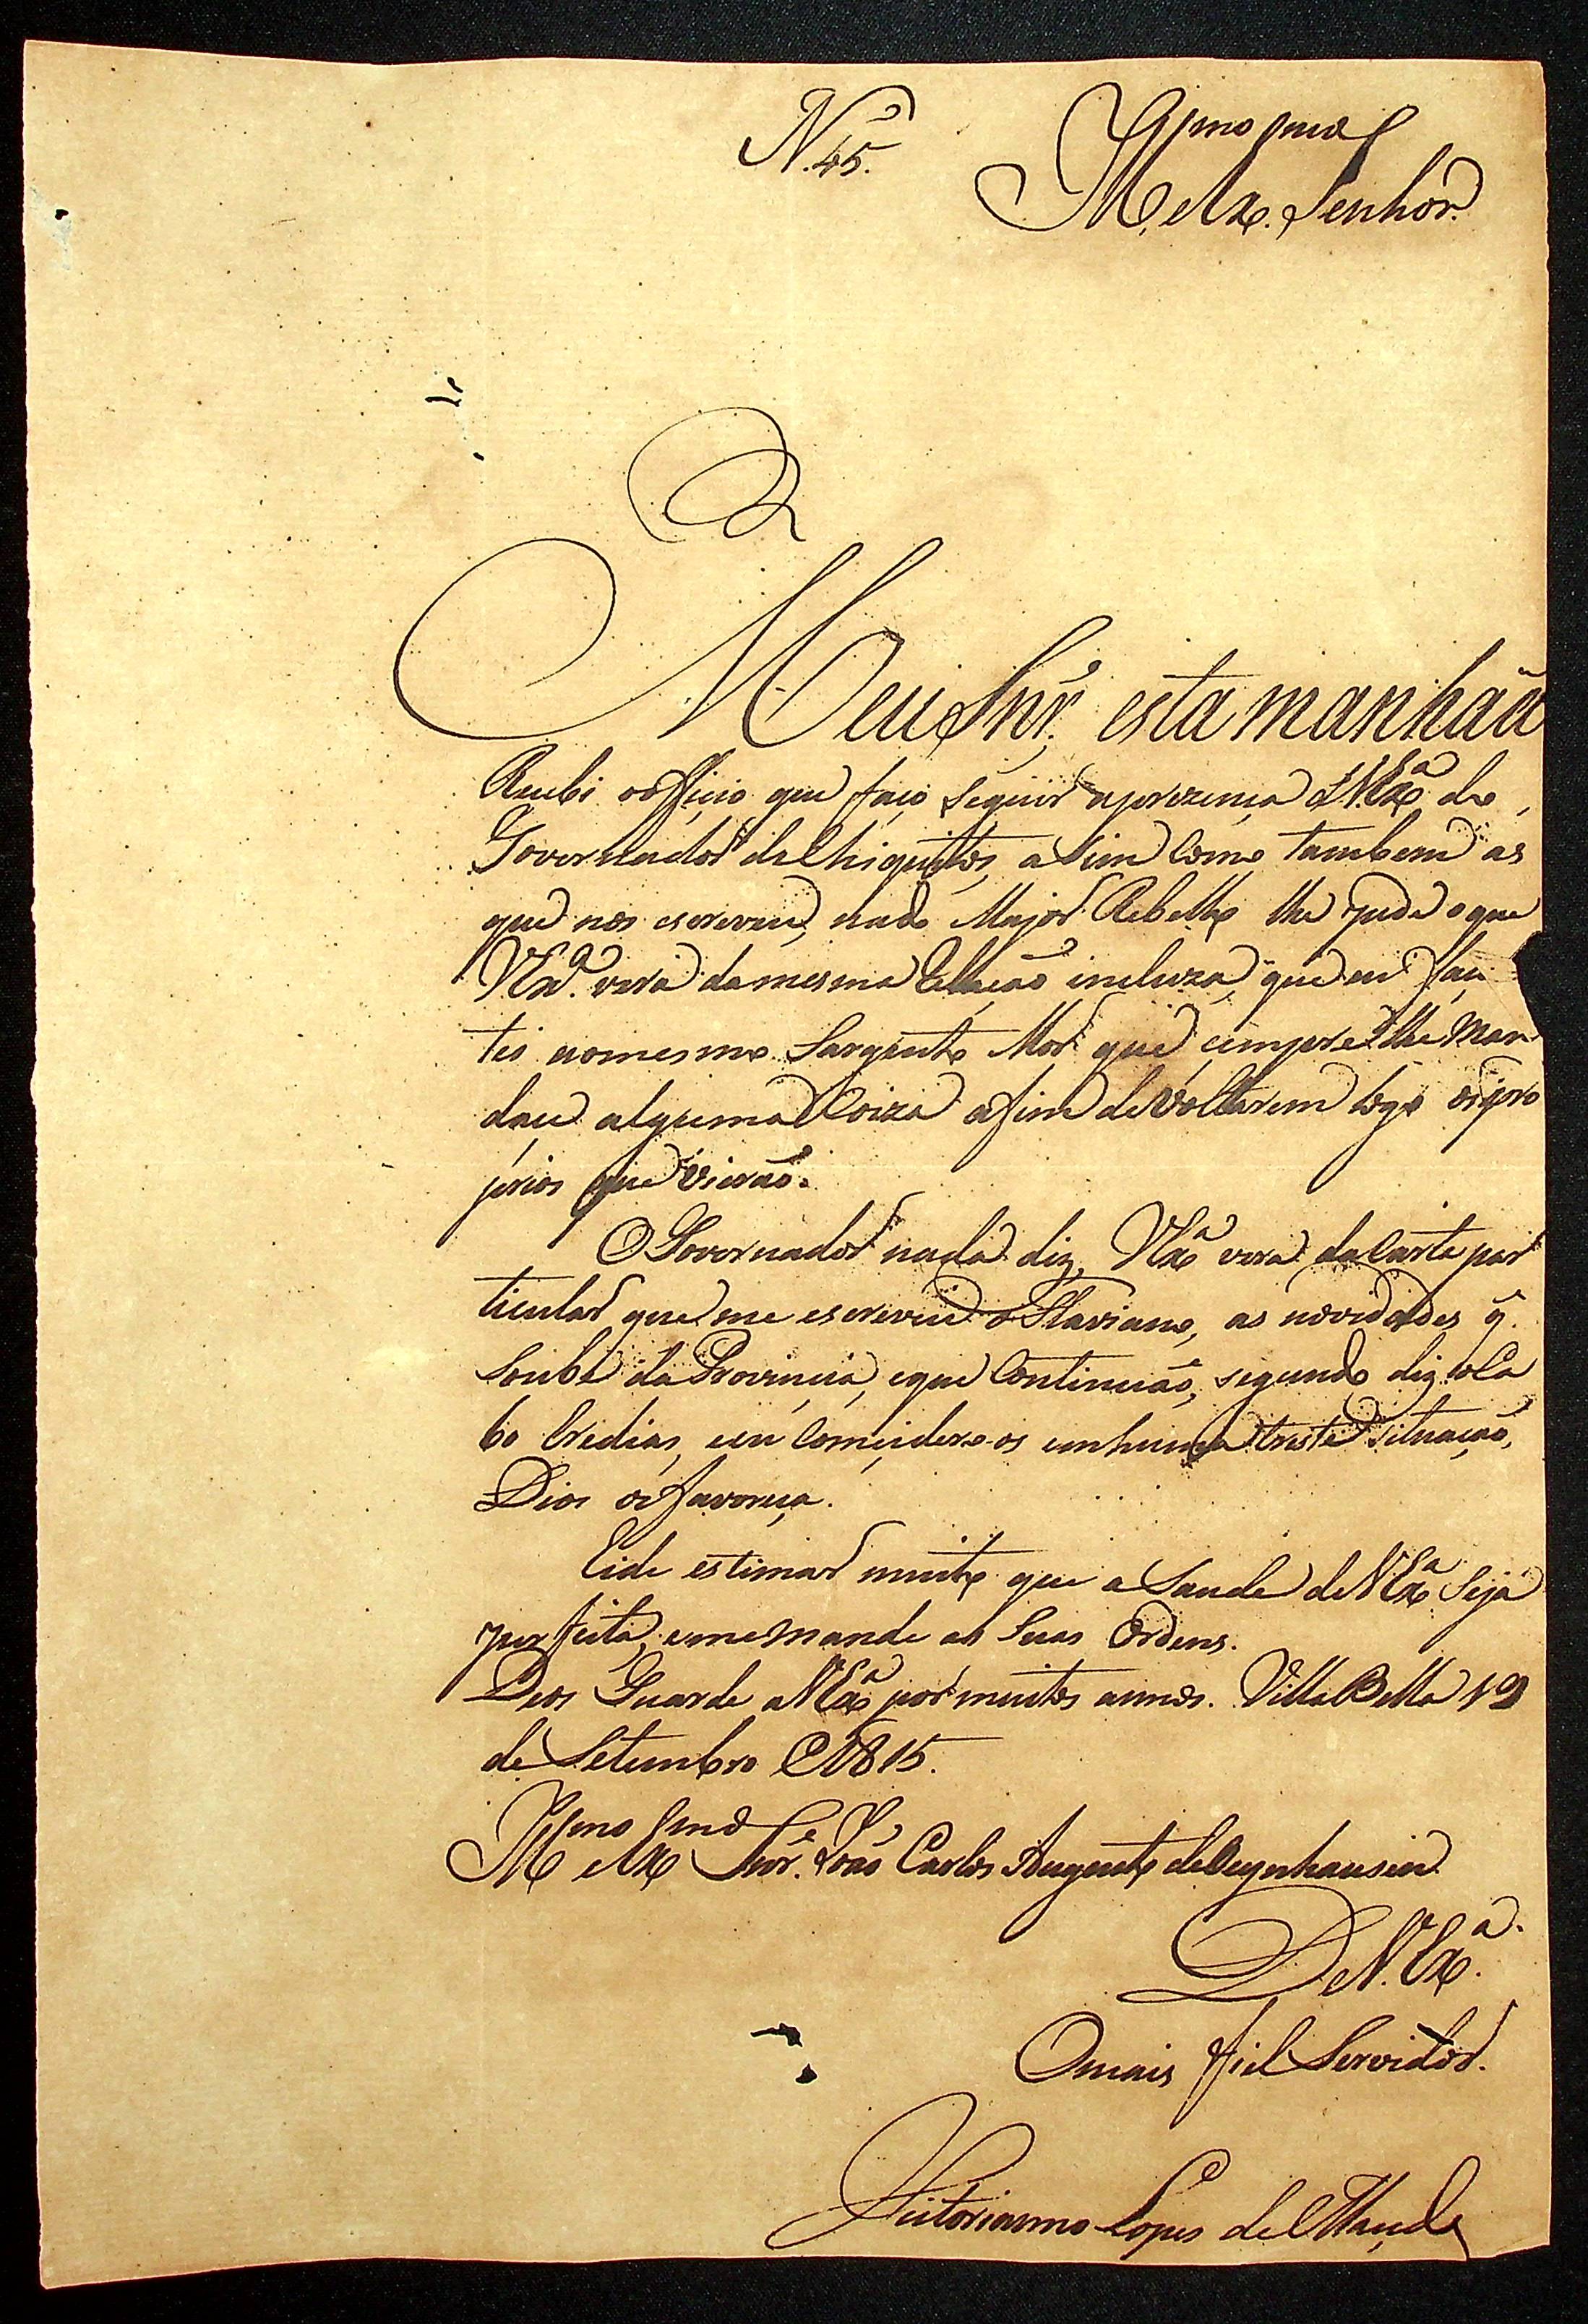 N.º 45.
Ill.mo e Ex.mo Senhor.
Meu Snr', esta manhãa
Recebi o officio que faço seguir aprezença d'V.Ex.ª do
Governador de Chiquitos, asim como tambem as
que nos escreveu, nade Major Rebello lhe pede o que
V.Ex.ª verá da mesma Relação incluza, que eu faci
tei aomesmo Sargento Mor que cempre lhe Man
dace alguma Coiza afim de Voltarem logo os pro
prios que vierão.
O Governador nada diz, V.Ex.ª vera da Carta par
ticular que me escreveu o Flaviano, as novidades q.
Soube da Provincia, eque Continuão, segundo diz o Ca
bo Eredias, eu Concidero-os emhuma triste Situação,
Dios os favoreça.
Eide estimar muito que a Saude de V.Ex.ª Seja
perfeita, eme mande as Suas Ordens.
Deos Guarde a V.Ex.ª por muitos annos. Villa Bella 19
de Setembro d'1815.
Ill.mo e Ex.mo Snr. João Carlos Augusto de Oeynhausen
De V. Ex.ª
Omais fiel Servidor.
Victorianno Lopes de Macedo